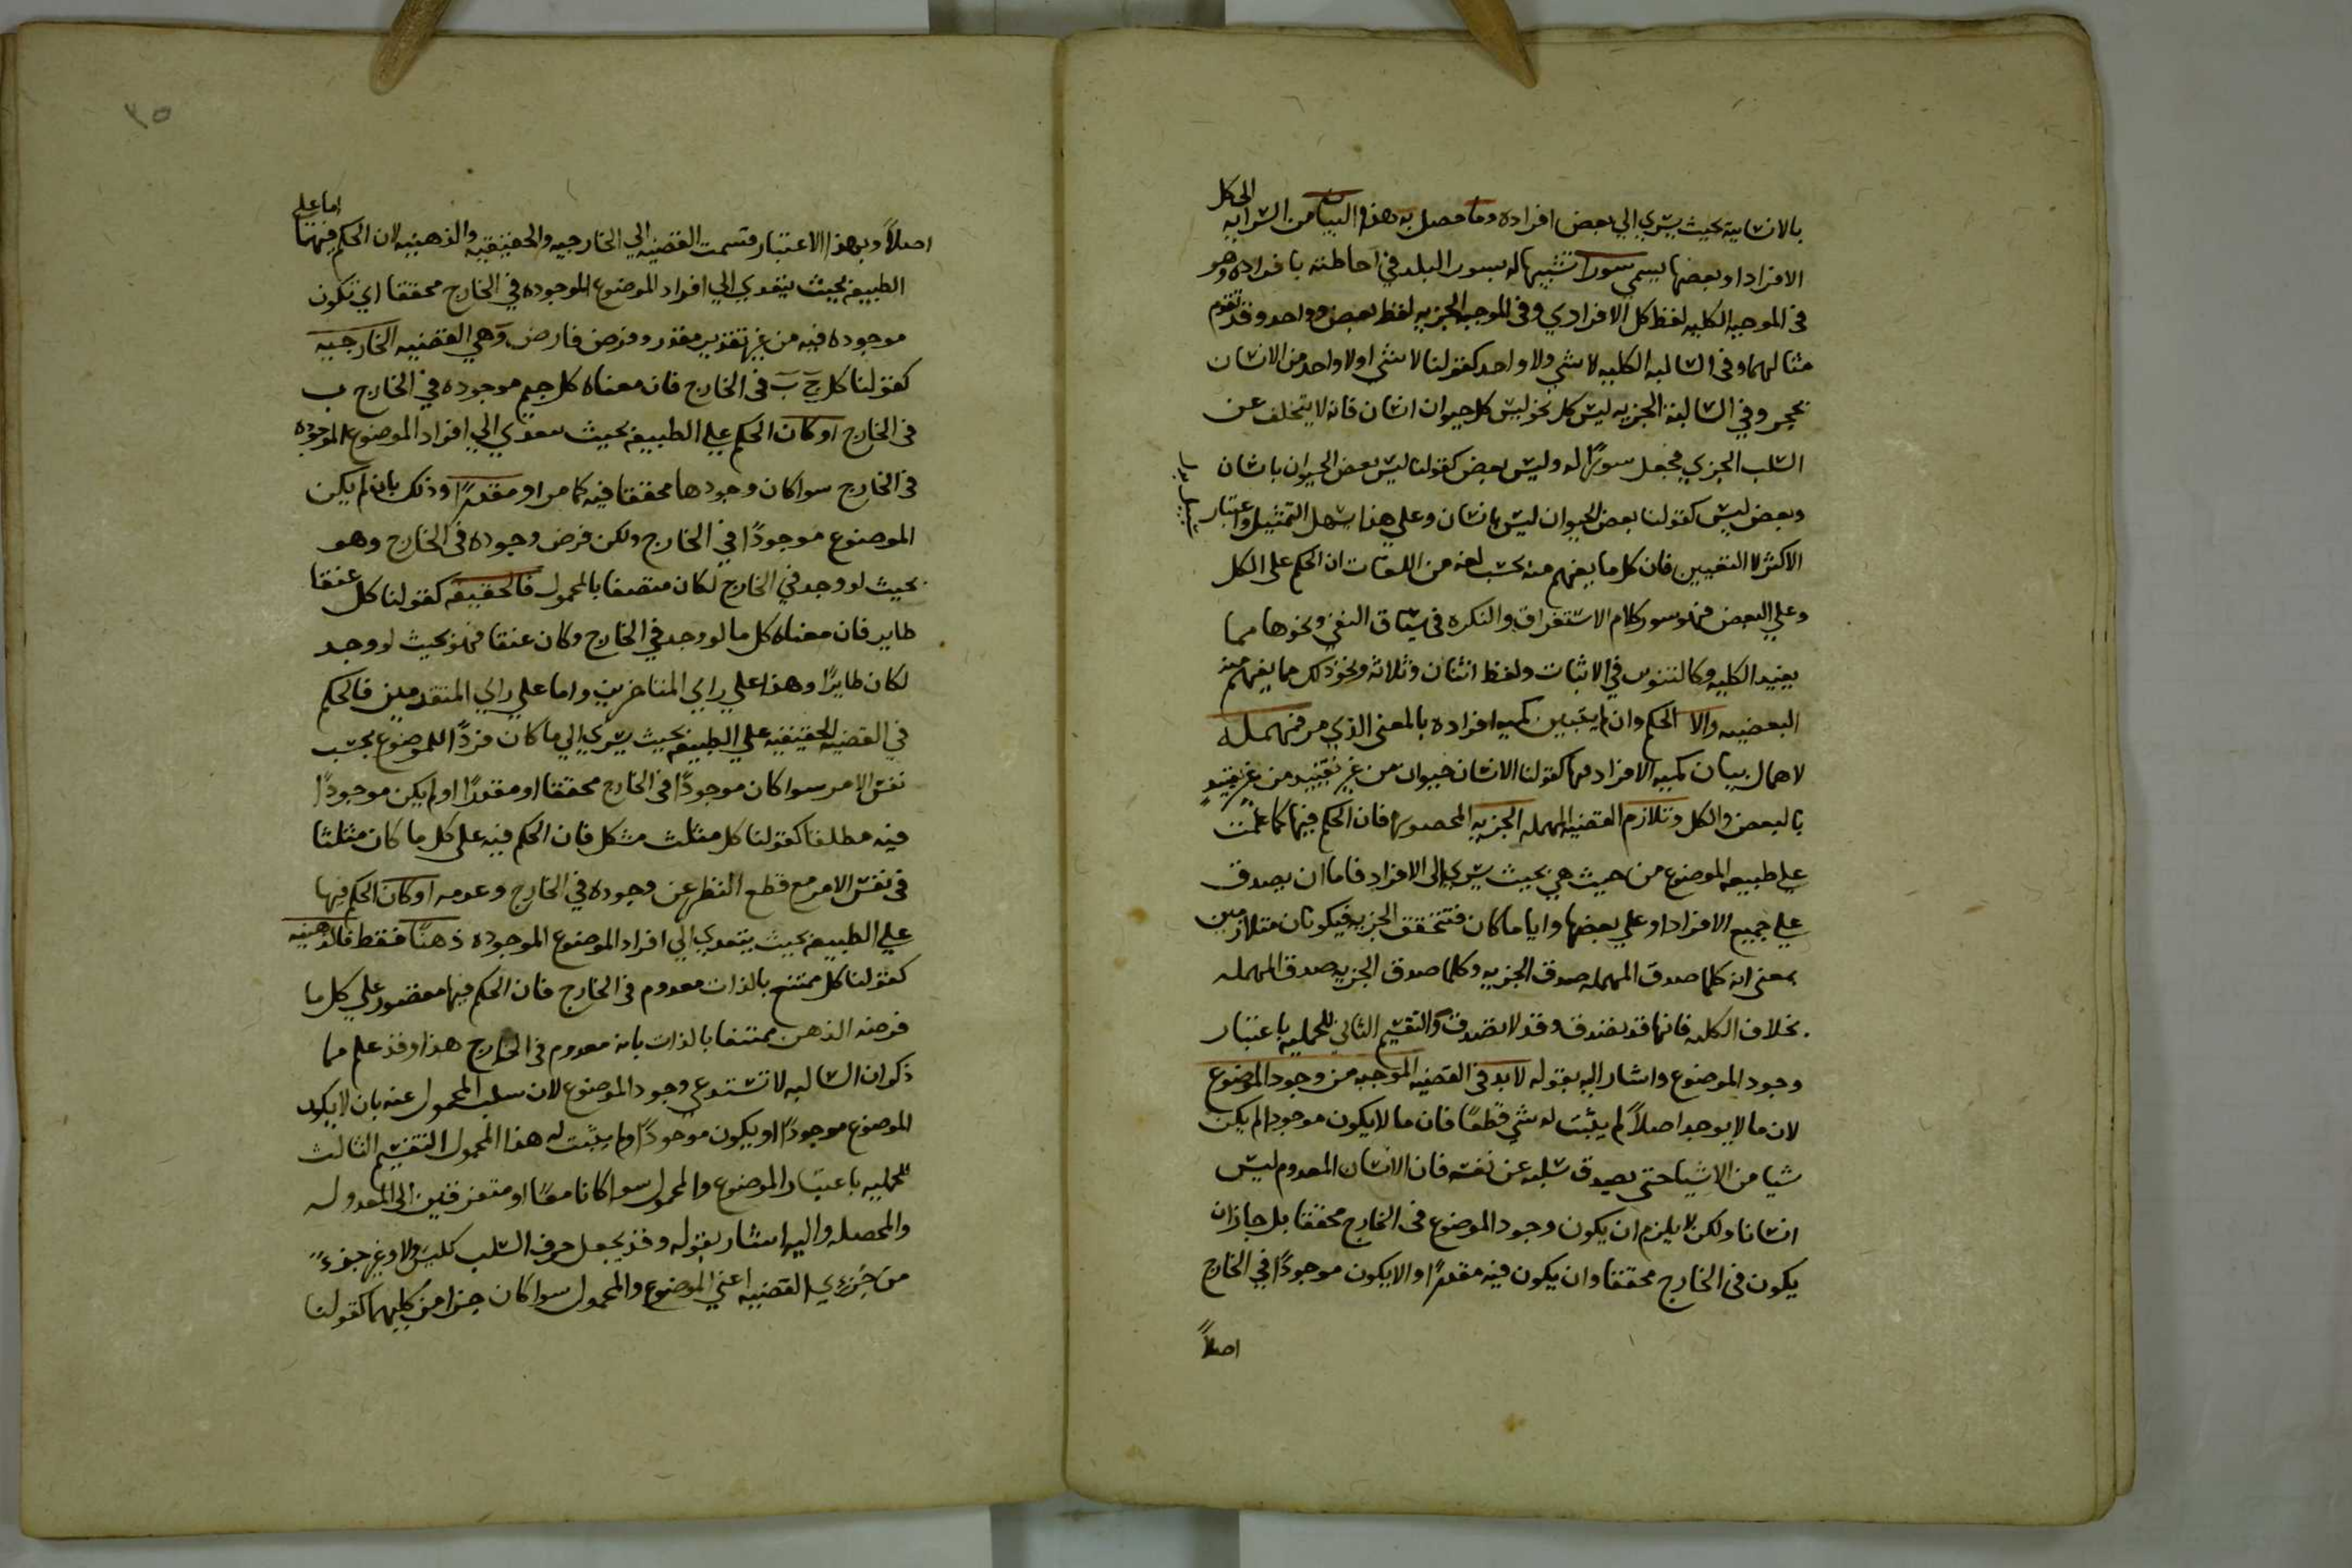 بالانسانية بحيث يسري الى بعض افراده وما حصل به هذا البيان من السراية الى كل
الافراد او بعضها يسمى سورا تشبيها له بسور البلد في احاطته بافراده وهو
في الموجبه الكليه لفظ كل الافرادي وفي الموجبه الجزيه لفظ بعض وواحد وقد تقدم
مثالهما وفي السالبه الكليه لا شي ولا واحد كقولنا لا شي او لا واحد من الانسان
بحجر وفي السالبة الجزيه ليس كل نحو ليس كل حيوان انسان فانه لا يتخلف عن
السلب الجزي فجعل سورًا له وليس بعض كقولنا ليس بعض الحيوان بانسان
وبعض ليس كقولنا بعض الحيوان ليس بانسان وعلي هذا سهل التمثيل واعتبار
الاكثر لا التعيين فان كل ما يفهم منه بحسب لغه من اللغات ان الحكم على الكل
وعلي البعض فهو سور كلام الاستغراق والنكره في سياق النفي ونحوها مما
يفيد الكليه وكالتنوين في الاثبات ولفظ اثنان وثلاثه ونحو ذلك مما يفهم منه
البعضيه والا الحكم وان لم يتبين كميه افراده بالمعنى الذي مر فمهمله
لاهمال بيان كميه الافراد فيها كقولنا الانسان حيوان من غير تقييد من غير تقييد
بالبعض والكل وتلازم القضيه المهمله الجزيه المحصوره فان الحكم فيها كما علمت
علي طبيعه الموضوع من حيث هي بحيث يسري الى الافراد فاما ان يصدق
علي جميع الافراد او علي بعضها وايا ما كان فتتحقق الجزيه فيكونان متلازمين
بمعنى انه كلما صدق المهمله صدق الجزيه وكلما صدق الجزيه صدق المهمله
بخلاف الكليه فانها قد تصدق وقد لا تصدق والتقسيم الثاني للحمليه باعتبار
وجود الموضوع واشار اليه بقوله لا بد في القضيه الموجبه من وجود الموضوع
لان ما لا يوجد اصلاً لم يثبت له شي قطعًا فان ما لا يكون موجودا لم يكن
شيا من الاشيا حتى يصدق سلبه عن نفسه فان الانسان المعدوم ليس
انسانا ولكن لا يلزم ان يكون وجود الموضوع في الخارج محققا بل جاز ان
يكون في الخارج محققا وان يكون فيه مقدرًا او الا يكون موجودًا في الخارج
اصلاً
٣٥
اصلاً وبهذا الاعتبار قسمت القضيه الى الخارجيه والحقيقيه والذهنيه لان الحكم فيها اما علي
الطبيعه بحيث يتعدي الى افراد الموضوع الموجوده في الخارج محققا اي تكون
موجوده فيه من غير تقدير مقدر وفرض فارض وهي القضيه الخارجيه
كقولنا كل ج ب في الخارج فان معناه كل جيم موجوده في الخارج ب
في الخارج او كان الحكم علي الطبيعه بحيث يتعدي الي افراد الموضوع الموجوده
في الخارج سوا كان وجودها محققا فيه كما مر او مقدرًا وذلك بان لم يكن
الموضوع موجودًا في الخارج ولكن فرض وجوده في الخارج وهو
بحيث لو وجد في الخارج لكان متصفا بالمحمول فالحقيقيه كقولنا كل عنقا
طاير فان معناه كل ما لو وجد في الخارج وكان عنقا فهو بحيث لو وجد
لكان طايرًا وهذا علي راي المتاخرين واما علي راي المتقدمين فالحكم
في القضيه الحقيقيه علي الطبيعه بحيث يسري الي ما كان فردًا للموضوع بحسب
نفس الامر سوا كان موجودًا في الخارج محققا او مقدرًا او لم يكن موجودًا
فيه مطلقا كقولنا كل مثلث مشكل فان الحكم فيه على كل ما كان مثلثا
في نفس الامر مع قطع النظر عن وجوده في الخارج وعدمه او كان الحكم فيها
علي الطبيعه بحيث يتعدي الي افراد الموضوع الموجوده ذهنًا فقط فالذهنيه
كقولنا كل ممتنع بالذات معدوم في الخارج فان الحكم فيها مقصور علي كل ما
فرضه الذهن ممتنعا بالذات بانه معدوم في الخارج هذا وقد علم مما
ذكر ان السالبه لا تستدعي وجود الموضوع لان سلب المحمول عنه بان لا يكون
الموضوع موجودًا او يكون موجودًا ولم يثبت له هذا المحمول التقسيم الثالث
للحمليه باعتبار الموضوع والمحمول سوا كانا معًا او متفرقين الى المعدوله
والمحصله واليه اشار بقوله وقد يجعل حرف السلب كليس ولا وغير جزءً
من جزءي القضيه اعني الموضوع والمحمول سوا كان جزا من كليهما كقولنا